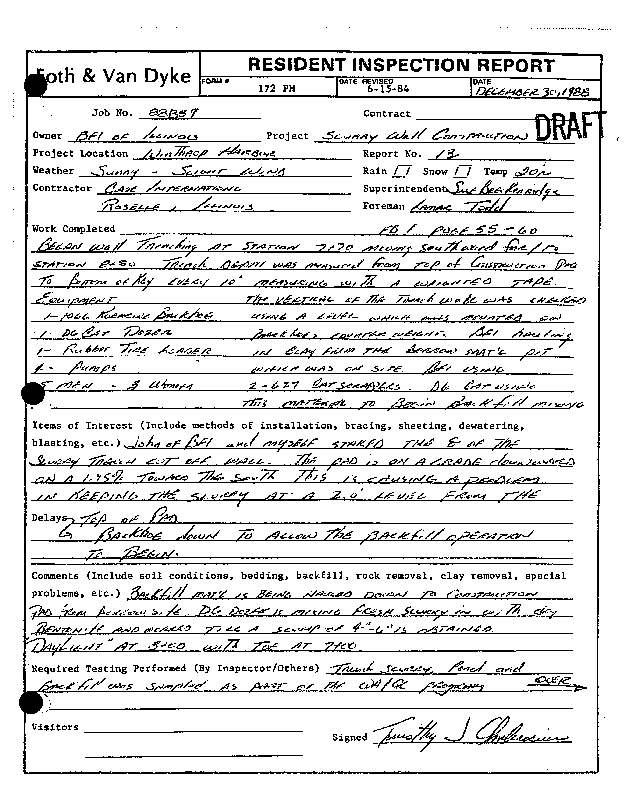 RESIDENT INSPECTION REPORT
Foth & Van Dyke
FORM # 172 PM
DATE REVISED 6-15-84
DATE DECEMBER 30, 1988
Job No. 88B59
Contract
DRAFT
Owner BFI OF ILLINOIS Project SLURRY WALL CONSTRUCTION
Project Location WINTHROP HARBOR Report No. 13
Weather SUNNY - SLIGHT WIND Rain Snow Temp
Contractor CASE INTERNATIONAL Superintendent
ROSELLE, ILLINOIS Foreman Lamar Todd
Work Completed
BEGAN WALL TRENCHING AT STATION 7+70 MOVING southward
STATION 8+50 TRENCH DEPTH WAS MEASURED FROM TOP OF CONSTRUCTION PAD
TO BOTTOM OF KEY EVERY 10' MEASURING WITH A WEIGHTED TAPE.
EQUIPMENT THE VERTICAL OF THE TRENCH WORK WAS CHECKED
1-1066 BACKHOE USING A LEVEL WHICH WAS MOUNTED ON
1- D6 CAT DOZER BACKHOES COUNTER WEIGHT. BFI HAULING
1- RUBBER TIRE LOADER IN CLAY FROM THE BORROW MAT'L PIT
4- PUMPS WHICH WAS ON SITE. BFI USING
5 MEN - WOMEN 2-627 CAT SCRAPERS. D6 CAT USING
THIS MATERIAL TO BEGIN BACKFILL MIXING
Items of Interest (Include methods of installation, bracing, sheeting, dewatering,
blasting, etc.) John of BFI and MYSELF STAKED THE OF THE
SLURRY TRENCH CUT OFF WALL. THE PAD IS ON A GRADE downward
ON A 1.75% TOWARD THE SOUTH THIS IS CAUSING A PROBLEM
IN KEEPING THE SLURRY AT A 2.0' LEVEL FROM THE
Delays TOP OF PAD
BACKHOE down TO ALLOW THE BACKFILL OPERATION
TO BEGIN.
Comments (Include soil conditions, bedding, backfill, rock removal, clay removal, special
problems, etc.) Backfill MAT'L IS BEING HAULED DOWN TO CONSTRUCTION
PAD FROM BORROW SITE. D6 DOZER IS MIXING FRESH SLURRY IN WITH dry
BENTONITE AND WORKED TILL A SLUMP OF 4"-6" IS OBTAINED.
"DAYLIGHT" AT WITH TOE AT
Required Testing Performed (By Inspector/Others) Trench slurry, Pond and
BACKFILL WAS SAMPLED AS PART OF THE QA/QC PROGRAM OVER
Visitors
Signed Timothy J